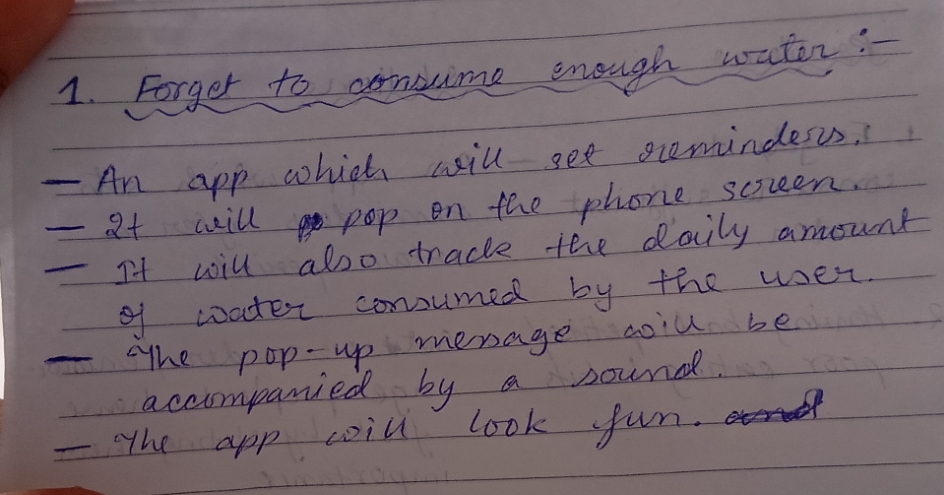 1. Forget to consume enough water :-
- An app which will set reminders.
- It will pop on the phone screen.
- It will also track the daily amount
of water consumed by the user.
- The pop-up message will be
accompanied by a sound.
- The app will look fun.